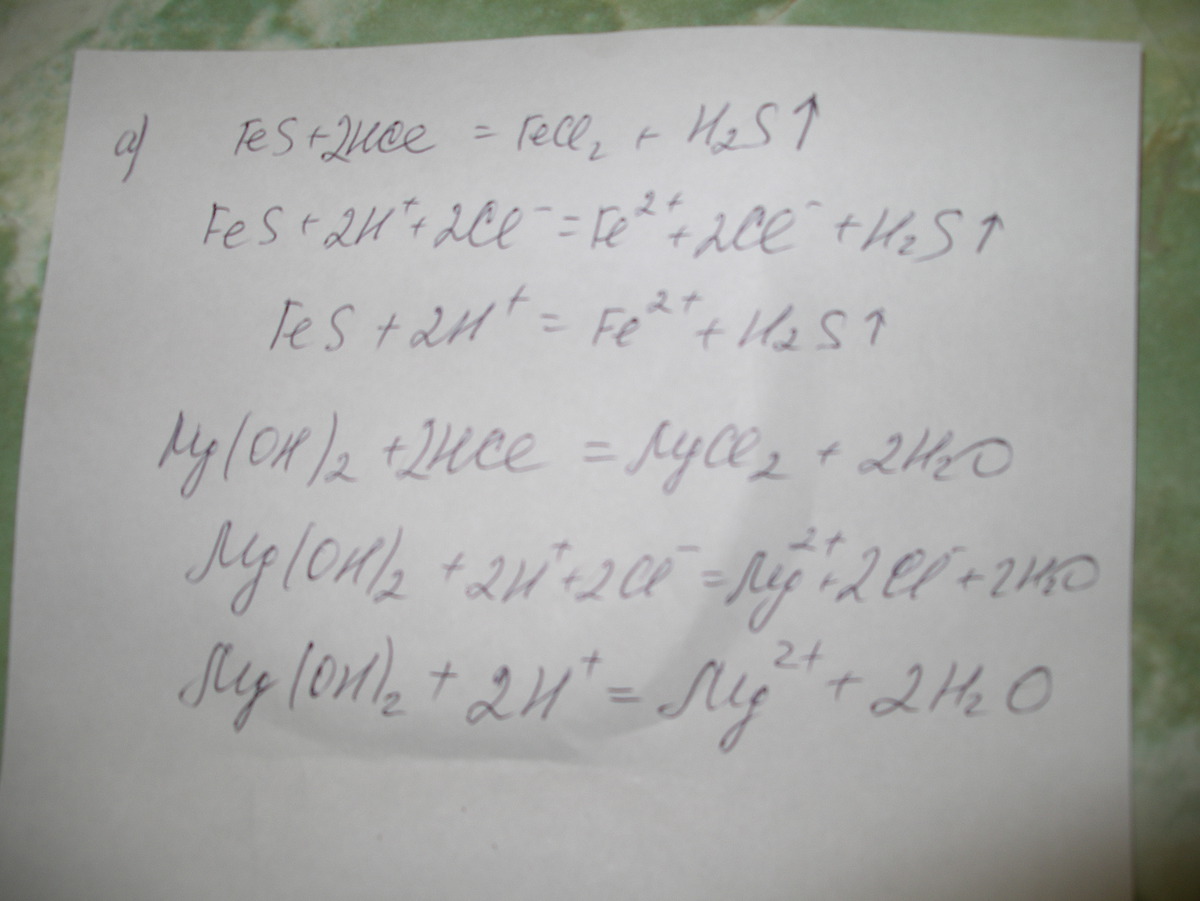 а) FeS + 2HCl = FeCl₂ + H₂S↑
FeS + 2H⁺ + 2Cl⁻ = Fe²⁺ + 2Cl⁻ + H₂S↑
FeS + 2H⁺ = Fe²⁺ + H₂S↑
Mg(OH)₂ + 2HCl = MgCl₂ + 2H₂O
Mg(OH)₂ + 2H⁺ + 2Cl⁻ = Mg²⁺ + 2Cl⁻ + 2H₂O
Mg(OH)₂ + 2H⁺ = Mg²⁺ + 2H₂O